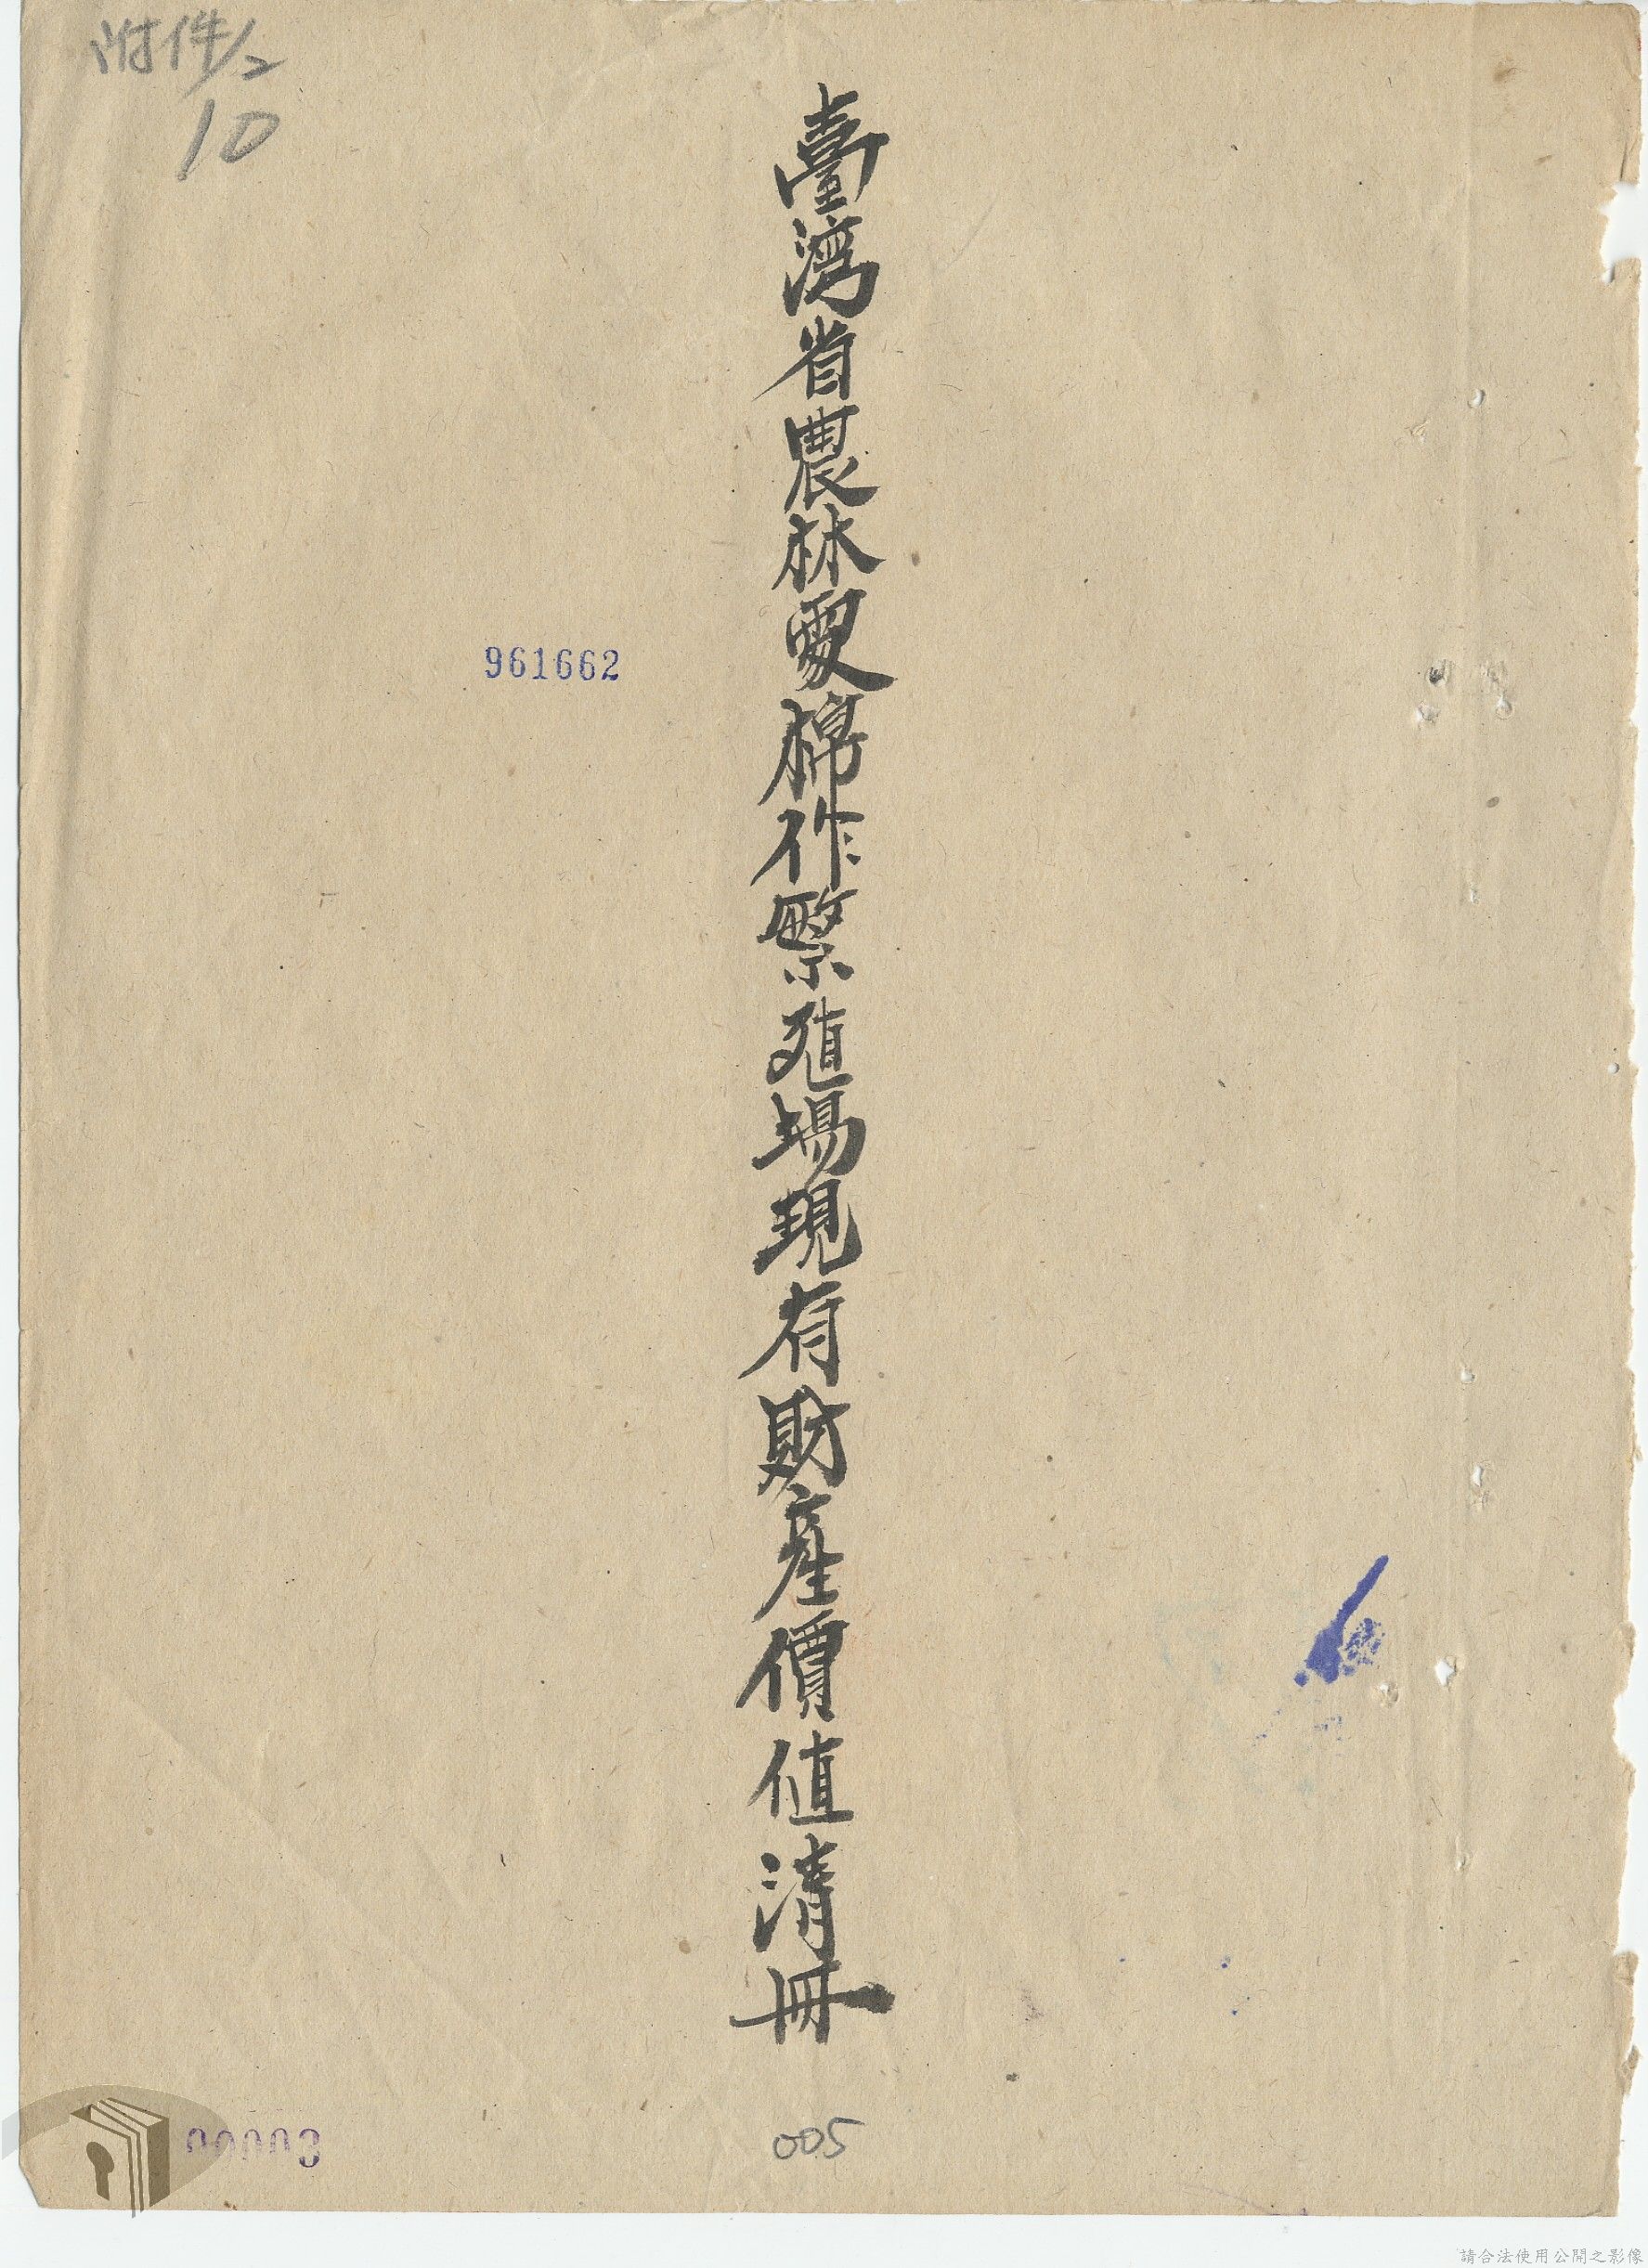 附件/2
10
臺湾省農林處棉作繁殖場現有財產價值清冊
961662
00003
005
請合法使用公開之影像